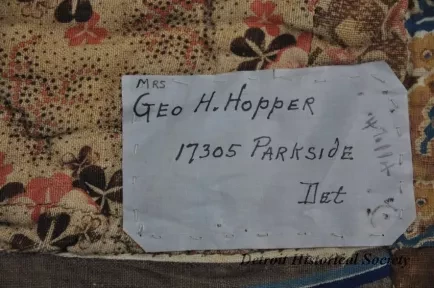 MRS
GEO H. HOPPER
17305 PARKSIDE
DET
Detroit Historical Society